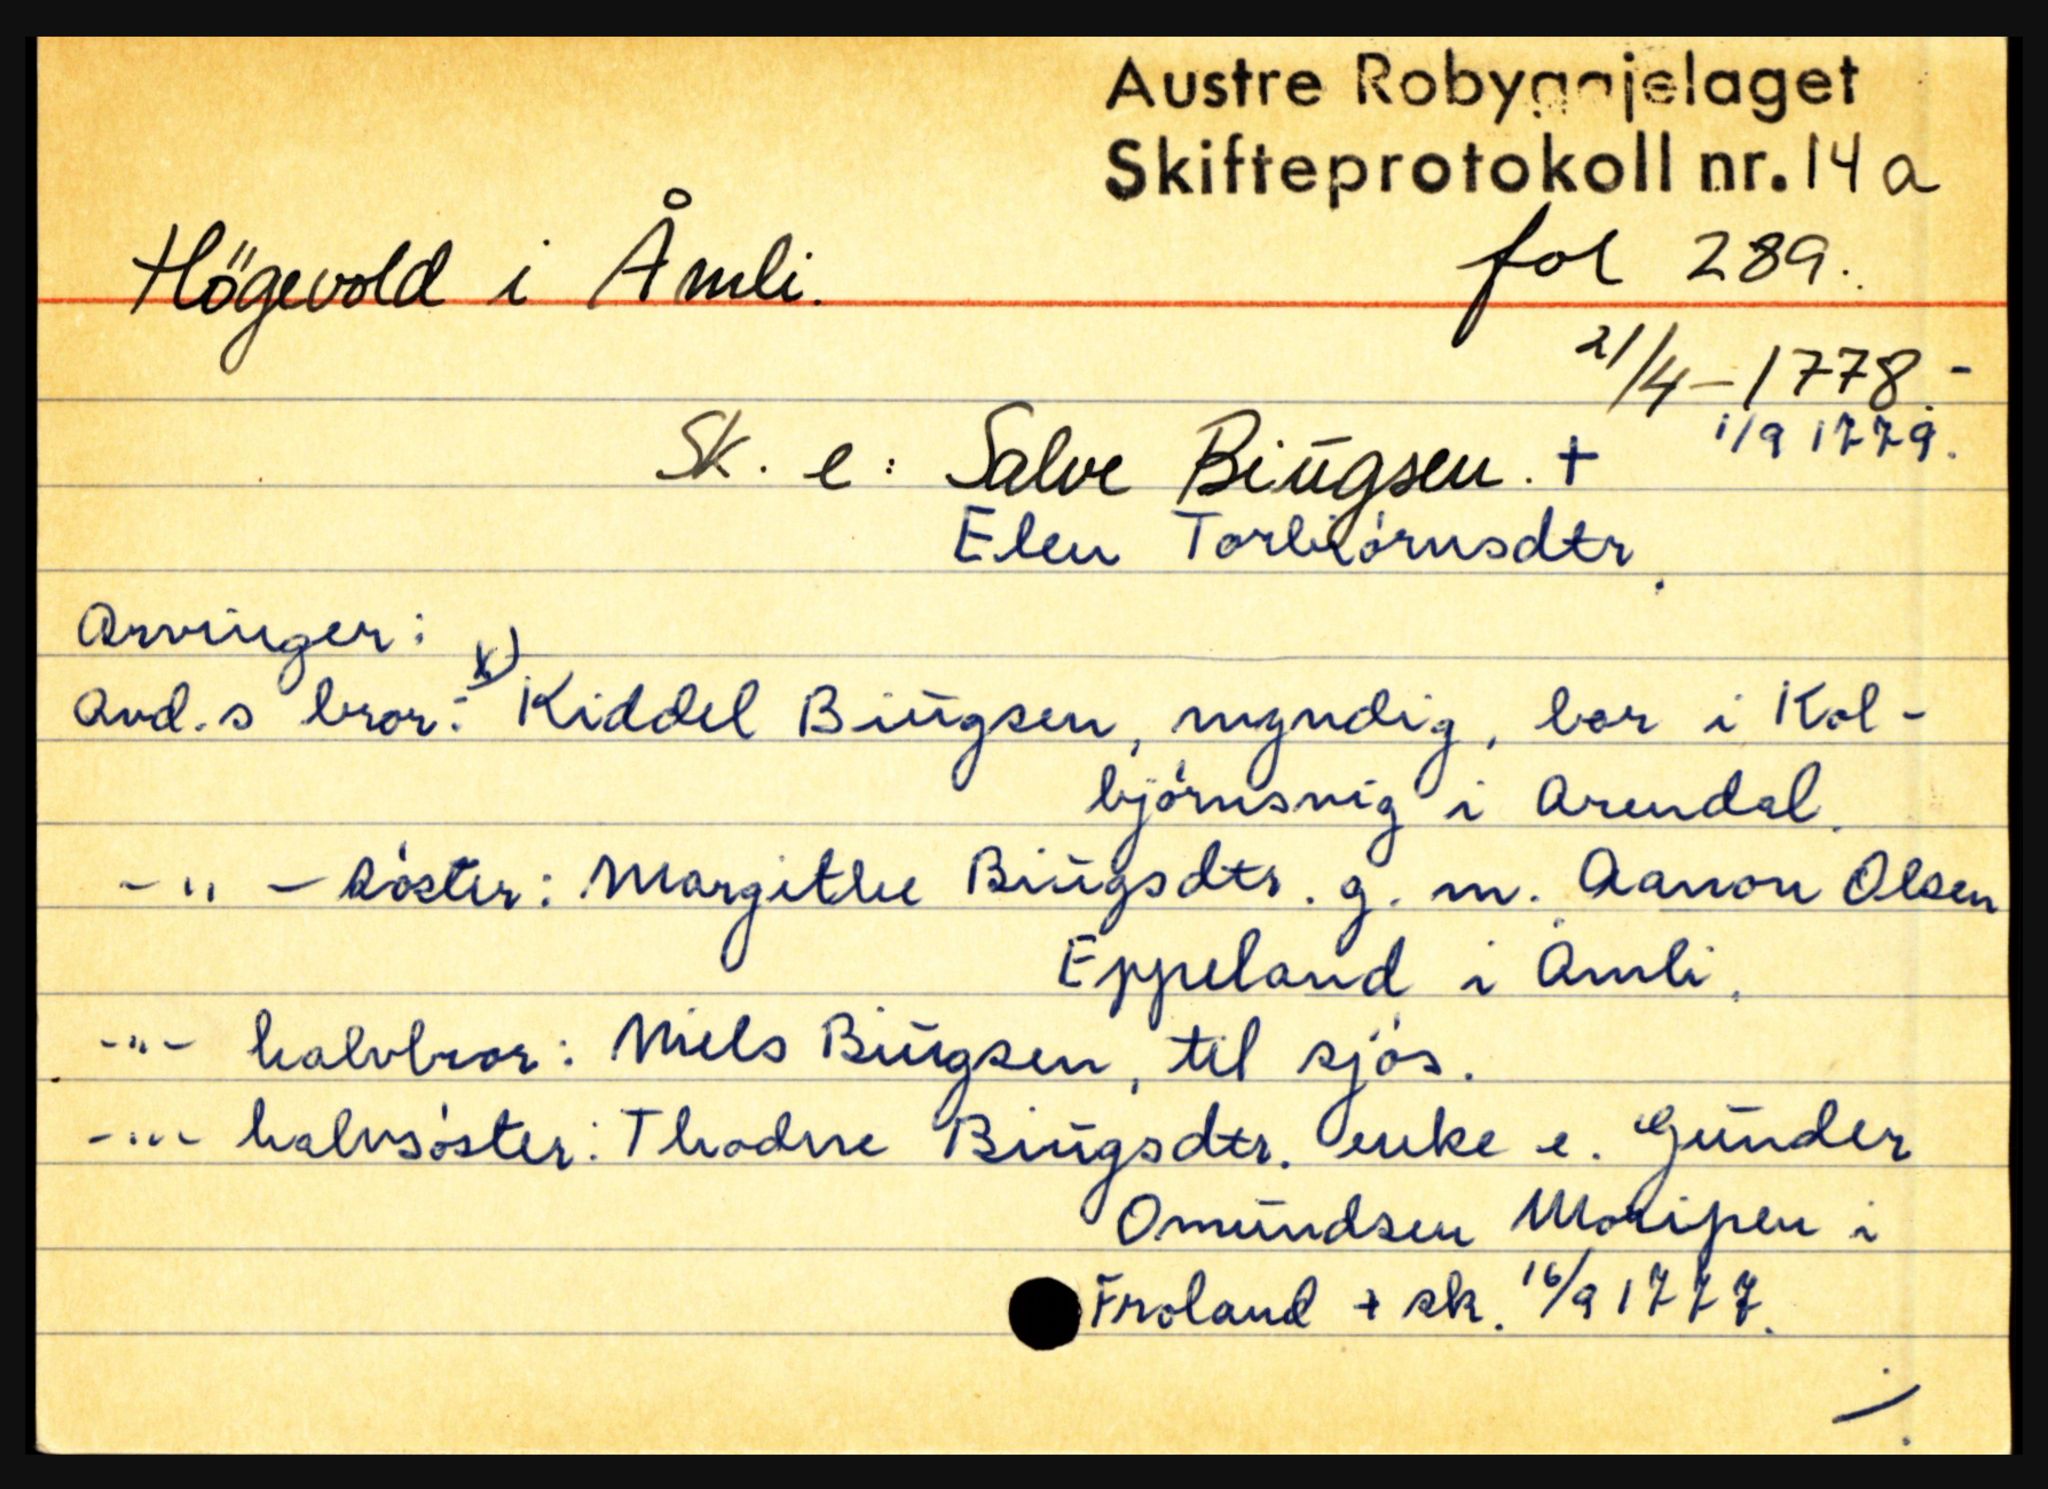 Austre Robyggjelaget
Skifteprotokoll nr. 14 a
Högevold i Åmli.
fol 289.
21/4 - 1778. -
1/9 1779.
Sk. e: Salve Biūgsen. +
Elen Torbiörnsdtr.
Arvinger:
avd.s bror: x) Kiddel Biūgsen, myndig, bor i Kol-
björnsvig i Arendal.
- " - söster: Margithe Biūgsdtr. g. m. Aanon Olsen
Eppeland i Åmli.
- " - halvbror: Niels Biūgsen, til sjös.
- " - halvsöster: Thodne Biūgsdtr. enke e. Gūnder
Omūndsen Mosipen i
Froland + sk. 16/9 1777.